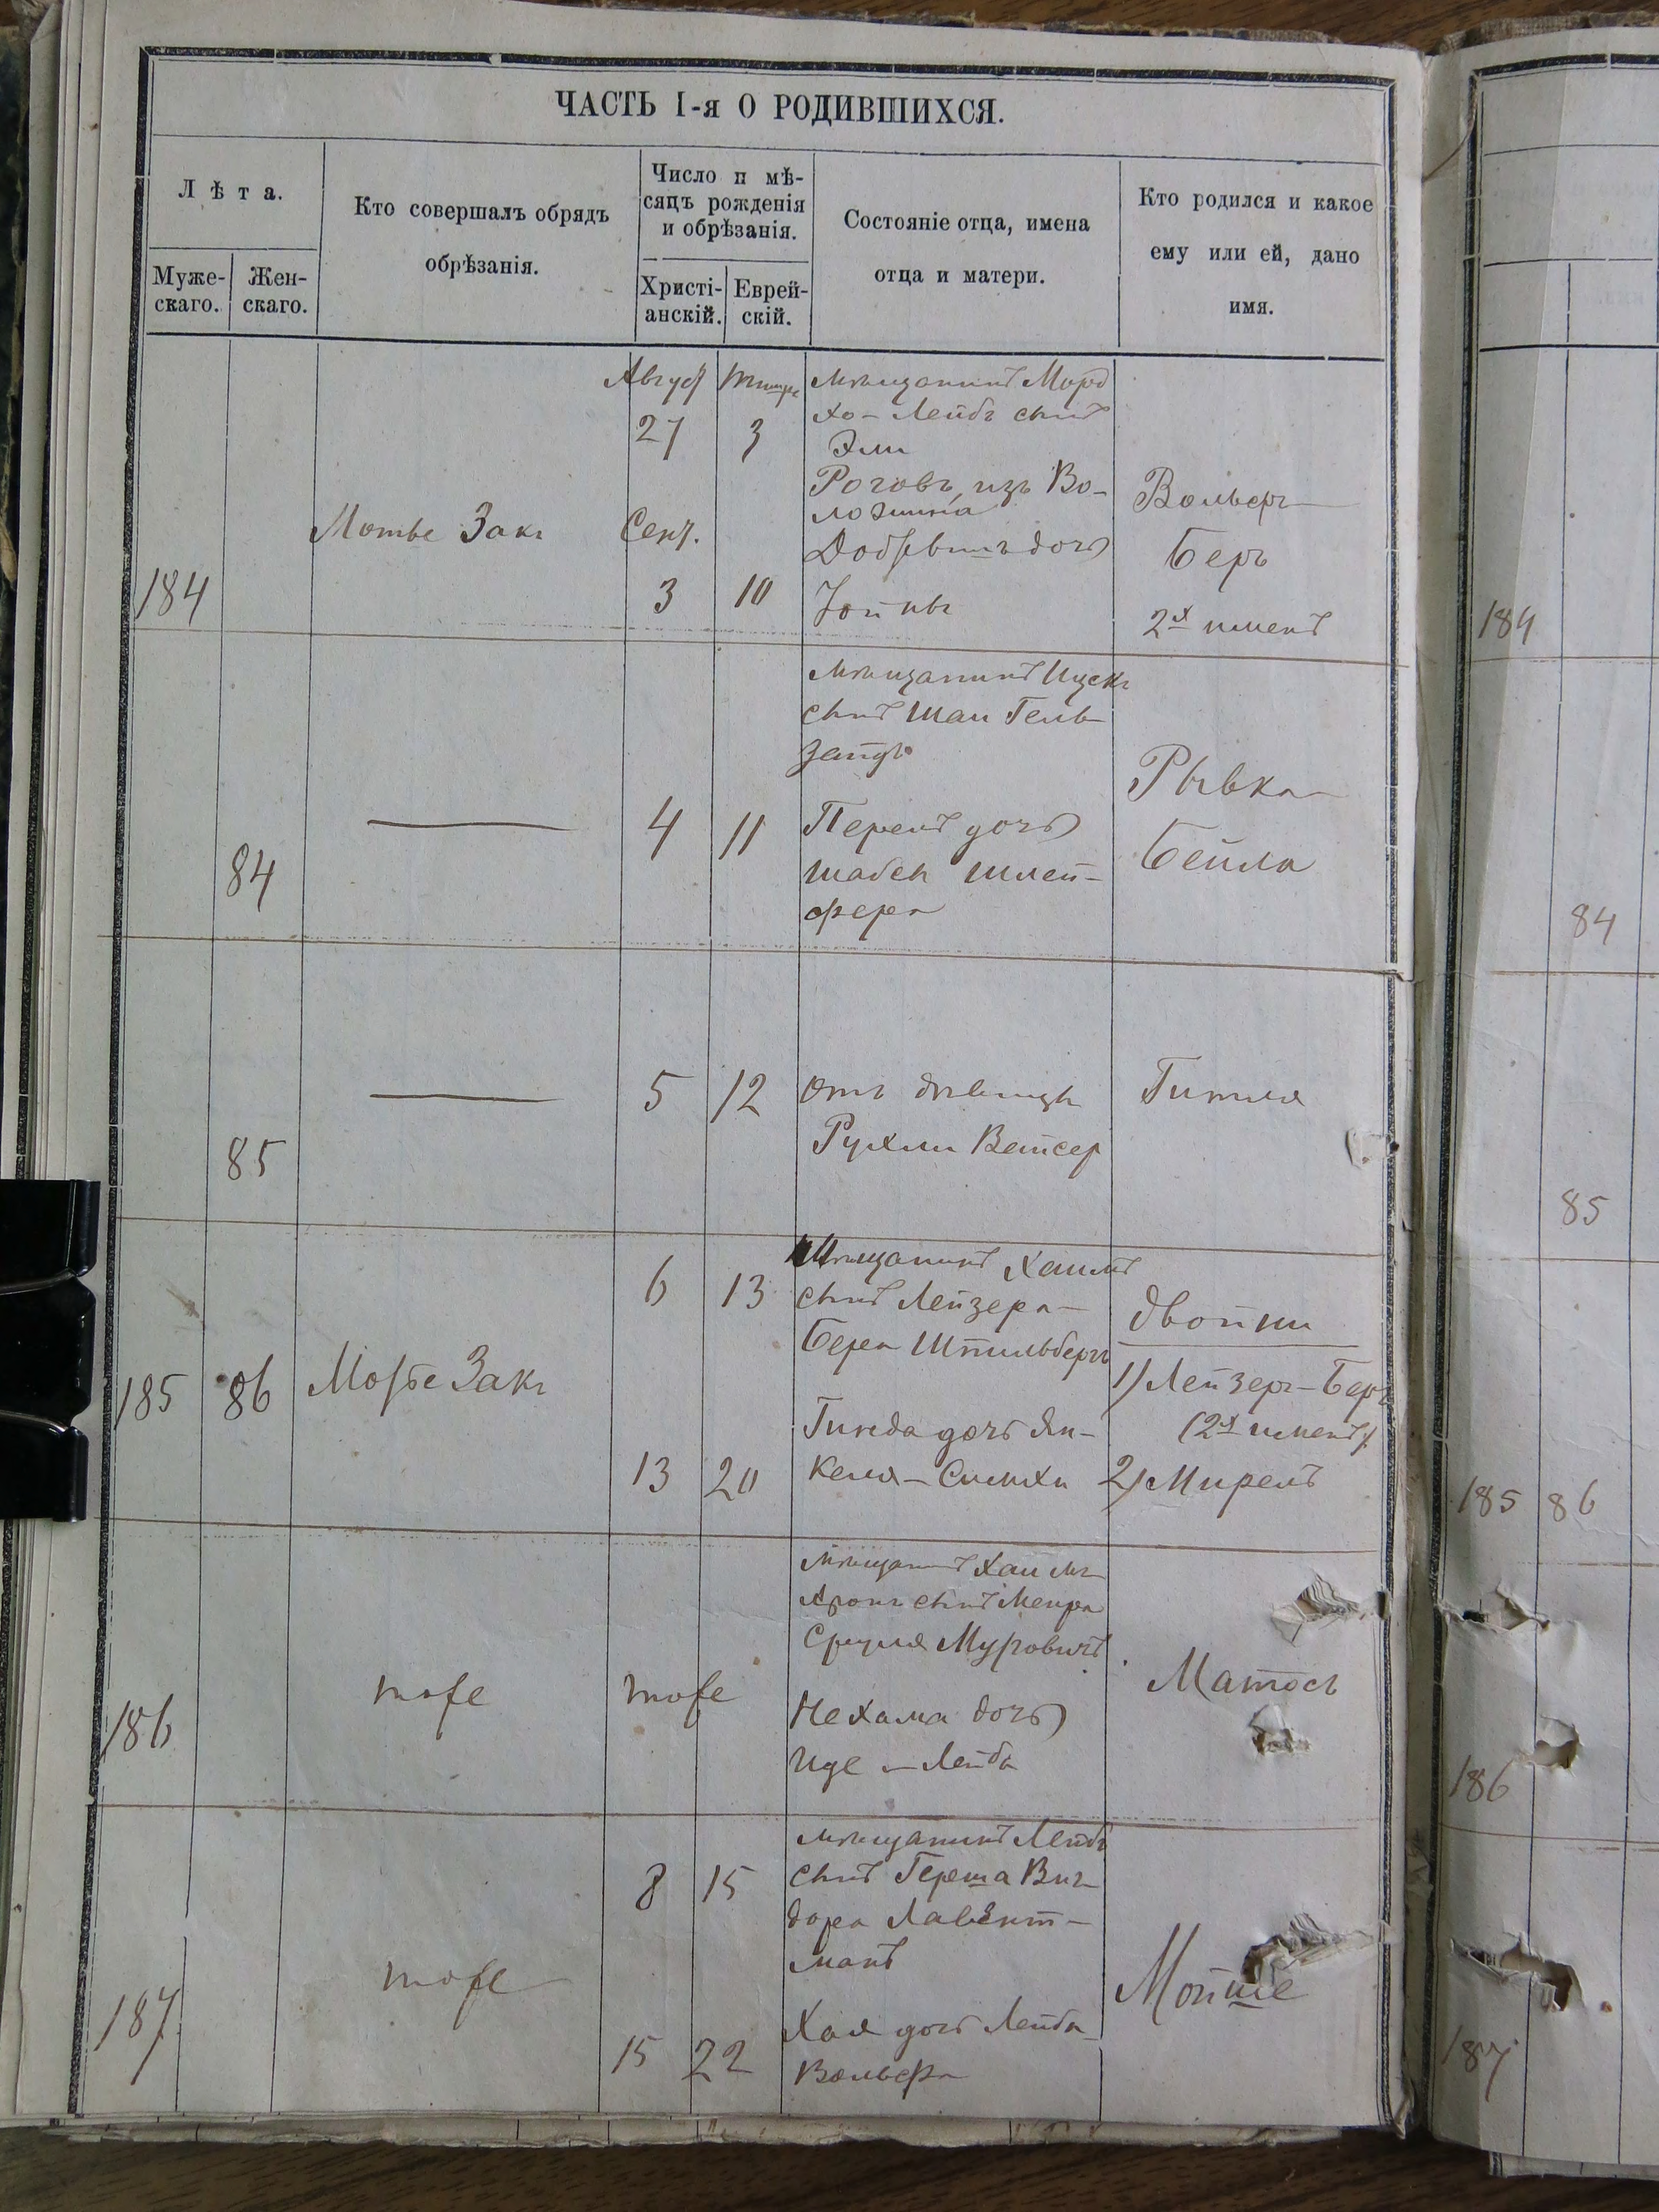 ЧАСТЬ I-я О РОДИВШИХСЯ.
Лѣта.
Муже-
скаго.
Жен-
скаго.
Кто совершалъ обрядъ
обрѣзанія.
Число и мѣ-
сяцъ рожденія
и обрѣзанія.
Христі-
анскій.
Еврей-
скій.
Состояніе отца, имена
отца и матери.
Кто родился и какое
ему или ей, дано
имя.
184
Мотье Закъ
Август
27
Сент.
3
3
10
мѣщанинъ Морд
хо-Лейбъ сынъ
Эли
Роговъ, изъ Во-
ложина
дочь
Вольфъ-
Беръ
2х именъ
184
84
4
11
мѣщанинъ Ицекъ
сынъ Шаи Гель-
Перель дочь
Шабси Шлей-
фера
Рывка-
Бейла
84
85
5
12
отъ дѣвицы
Рухли Вейсер
Гитля
85
185
86
Мотье Закъ
6
13
13
20
мѣщанинъ Хаимъ
сынъ Лейзера-
Бера Штильберг
дочь Ян-
келя-Симхи
двойни
1) Лейзеръ-Беръ
(2х именъ)
2) Мирель
185
86
186
тоже
тоже
мѣщанинъ Хаимъ
Аронъ сынъ Меира
Сруля Муровичъ
Нехама дочь
Ице-Лейба
Матос
186
187
тоже
8
15
15
22
мѣщанинъ Лейбъ
сынъ Герша Виг-
дора
манъ
Хая дочь Лейба-
Вольфа
Мойше
187